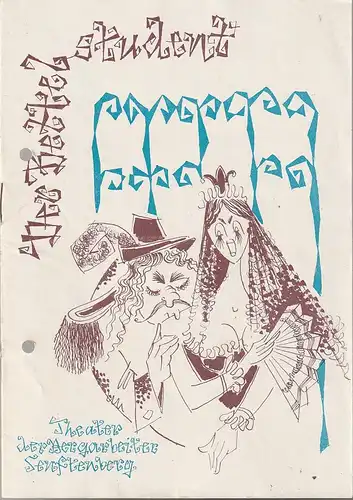 Der Bettel
student
Theater
der Bergarbeiter
Senftenberg